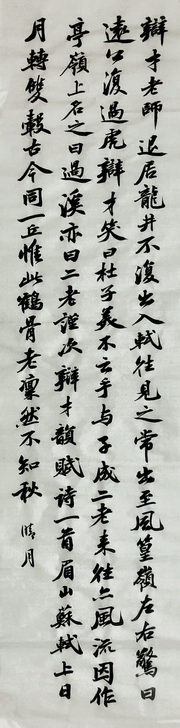 辯才老師退居龍井不復出入軾往見之常出至風篁嶺左右驚曰
遠公復過虎辯才笑曰杜子美不云乎与子成二老来往亦風流因作
亭嶺上名之曰過溪亦曰二老謹次辯才韻賦诗一首眉山蘇軾上日
月轉雙轂古今同一丘惟此鶴骨老凜然不知秋